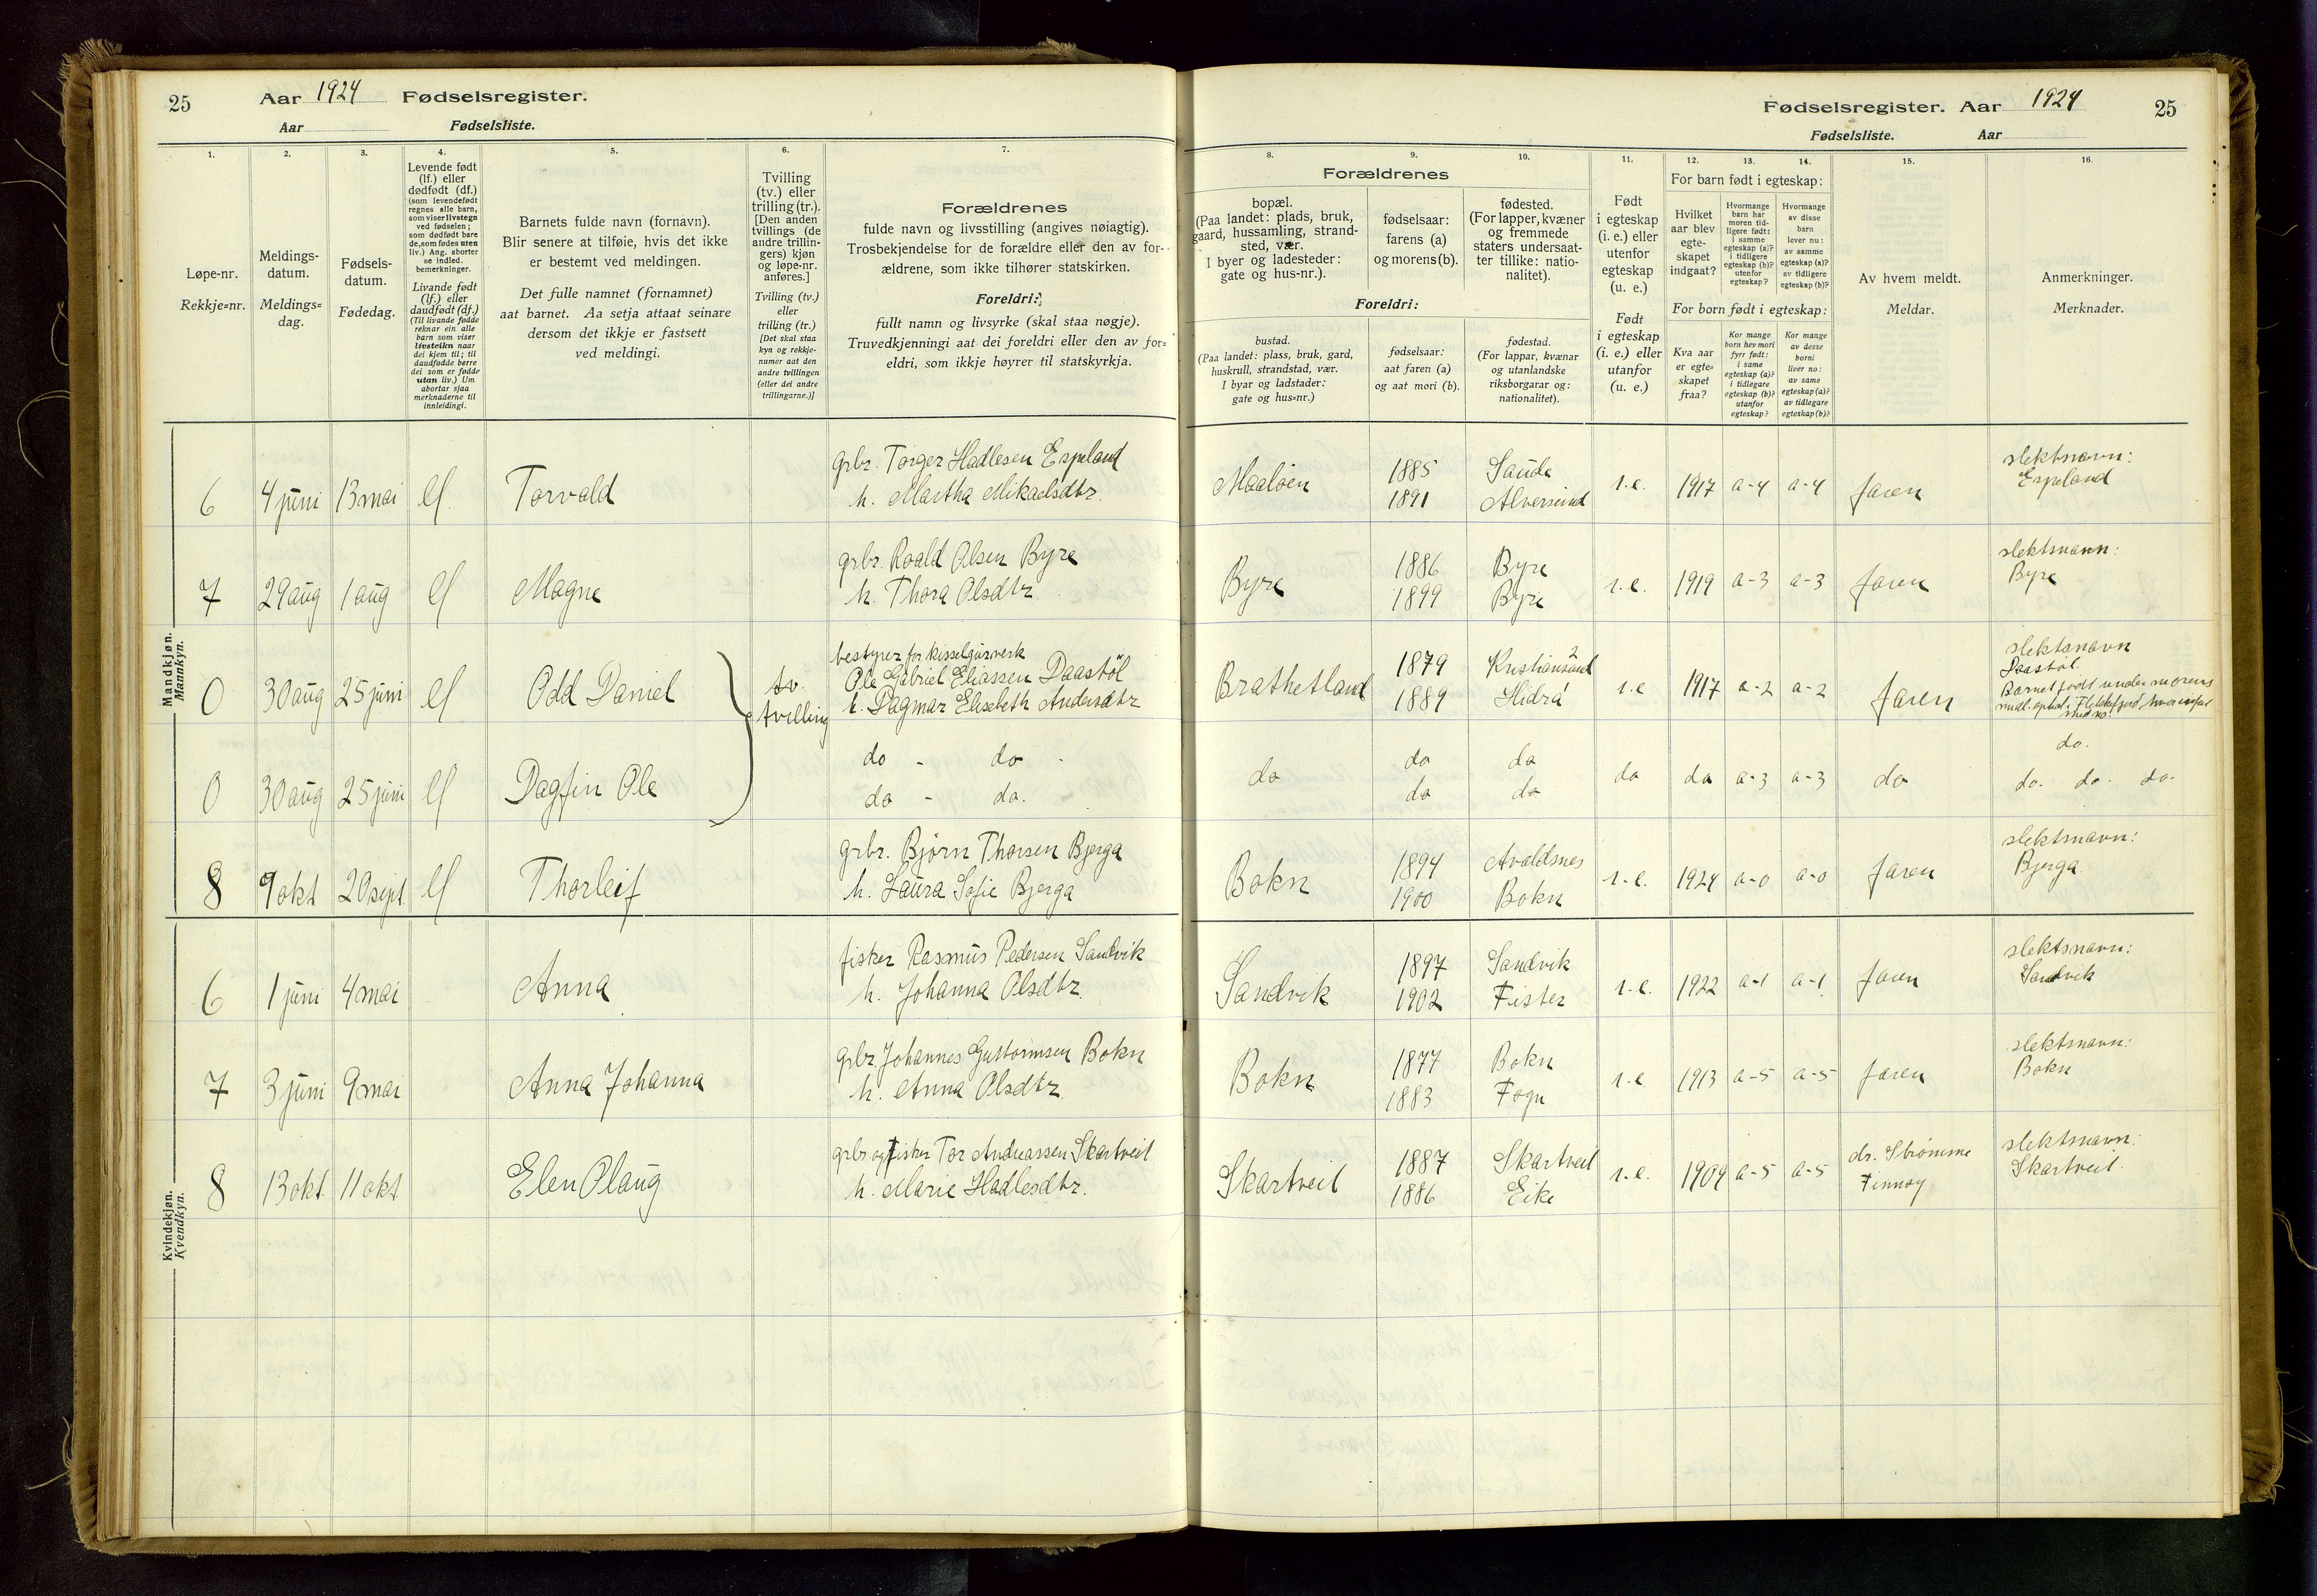 25 Aar 1924 Fødselsregister.
Aar Fødselsliste.
Fødselsregister. Aar 1924 25
Fødselsliste. Aar
1. 2. 3. 4. 5. 6. 7.
Løpe-nr.
Rekkje=nr.
Meldings-
datum.
Meldings=
dag.
Fødsels-
datum.
Fødedag.
Levende født
(lf.) eller
dødfødt (df.)
(som levendefødt
regnes alle barn,
som viser livstegn
ved fødselen;
som dødfødt bare
de, som fødes uten
liv.) Ang. aborter
se indled.
bemerkninger.
Livande født
(lf.) eller
daudfødt (df.)
(Til livande fødde
reknar ein alle
barn som viser
livsteikn naar
dei kjem til; til
daudfødde berre
dei som er fødde
utan liv.) Um
abortar sjaa
merknaderne til
innleidingi.
Barnets fulde navn (fornavn).
Blir senere at tilføie, hvis det ikke
er bestemt ved meldingen.
Det fulle namnet (fornamnet)
aat barnet. Aa setja attaat seinare
dersom det ikkje er fastsett
ved meldingi.
Tvilling
(tv.) eller
trilling (tr.).
[Den anden
tvillings (de
andre trillin-
gers) kjøn
og løpe-nr.
anføres.]
Tvilling (tv.)
eller
trilling (tr.)
[Det skal staa
kyn og rekkje-
numer aat den
andre tvillingen
(eller dei andre
trillingarne.)]
Forældrenes
fulde navn og livsstilling (angives nøiagtig).
Trosbekjendelse for de forældre eller den av for-
ældrene, som ikke tilhører statskirken.
Foreldri:
fullt namn og livsyrke (skal staa nøgje).
Truvedkjenningi aat dei foreldri eller den av for=
eldri, som ikkje høyrer til statskyrkja.
8. 9. 10. 11. 12. 13. 14. 15. 16.
Forældrenes
bopæl.
(Paa landet: plads, bruk,
gaard, hussamling, strand-
sted, vær.
I byer og ladesteder:
gate og hus-nr.).
fødselsaar:
farens (a)
og morens (b).
fødested.
(For lapper, kvæner
og fremmede
staters undersaat-
ter tillike: natio-
nalitet).
Foreldri:
bustad.
(Paa landet: plass, bruk, gard,
huskrull, strandstad, vær.
I byar og ladstader:
gate og hus=nr.)
fødselsaar:
aat faren (a)
og aat mori (b).
fødestad.
(For lappar, kvænar
og utanlandske
riksborgarar og:
nationalitet).
Født
i egteskap
(i. e.) eller
utenfor
egteskap
(u. e.)
Født
i egteskap
(i. e.) eller
utanfor
(u. e.)
For barn født i egteskap:
Hvilket
aar blev
egte-
skapet
indgaat?
Hvormange
barn har
moren tid-
ligere født:
i samme
egteskap (a)?
utenfor
egteskap (b)?
Hvormange
av disse
barn
lever nu:
av samme
egteskap (a)?
av tidligere
egteskap (b)?
For born født i egteskap:
Kva aar
er egte=
skapet
fraa?
Kor mange
born hev mori
fyrr født:
i same
egteskap (a)?
i tidlegare
egteskap (b)?
utanfor
egteskap?
Kor mange
av desse
borni
liver no:
av same
egteskap (a)?
av tidlegare
egteskap (b)?
Av hvem meldt.
Meldar.
Anmerkninger.
Merknader.
Mandkjøn.
Mannkyn.
6 4 juni 13 mai lf. Torvald grbr. Torger Hadlesen Espeland
h. Martha Mikaelsdtr.
Maaløen 1885 Sauda i.e. 1917 a-4 a-4 faren slektsnavn:
1891 Alversund Espeland
7 29 aug 1 aug lf Magne grbr. Roald Olsen Byre
h. Thora Olsdtr.
Byre 1886 Byre i.e. 1919 a-3 a-3 faren slektsnavn:
1899 Byre Byre
0 30 aug 25 juni lf Odd Daniel tv. tvilling bestyrer for kisselgurverk
Ole Gabriel Eliassen Daastöl
h. Dagmar Elisebeth Andersdtr
Brathetland 1879 Kristiansand i.e 1917 a-2 a-2 faren slektsnavn
1889 Hidrá Daastöl.
Barnet født under morens
midl. ophold i Flekkefjord
0 30 aug 25 juni lf Dagfin Ole do - do -
do - do.
do do do do do a-3 a-3 do do.
do do do. do. do.
8 9 okt 20 sept. lf Thorleif grbr. Bjørn Thorsen Bjerga
h. Laura Sofie Bjerga
Bokn 1894 Avaldsnes i.e. 1924 a-0 a-0 faren slektsnavn:
1900 Bokn Bjerga
Kvindekjøn.
Kvendkyn.
6 1 juni 4 mai Anna fisker Rasmus Pedersen Sandvik
h. Johanna Olsdtr.
Sandvik 1897 Sandvik i.e. 1922 a-1 a-1 faren slektsnavn:
1902 Fister Sandvik
7 3 juni 9 mai Anna Johanna grbr. Johannes Guttormsen Bokn
h. Anna Olsdtr.
Bokn 1877 Bokn i.e 1913 a-5 a-5 faren slektsnavn:
1883 Fogn Bokn
8 13 okt. 11 okt Elen Olaug grbr og fisker Tor Andreassen Skartveit
h. Marie Hadlesdtr.
Skartveit 1887 Skartveit i.e. 1909 a-5 a-5 dr. Strømme slektsnavn:
1886 Eike Finnøy Skartveit.